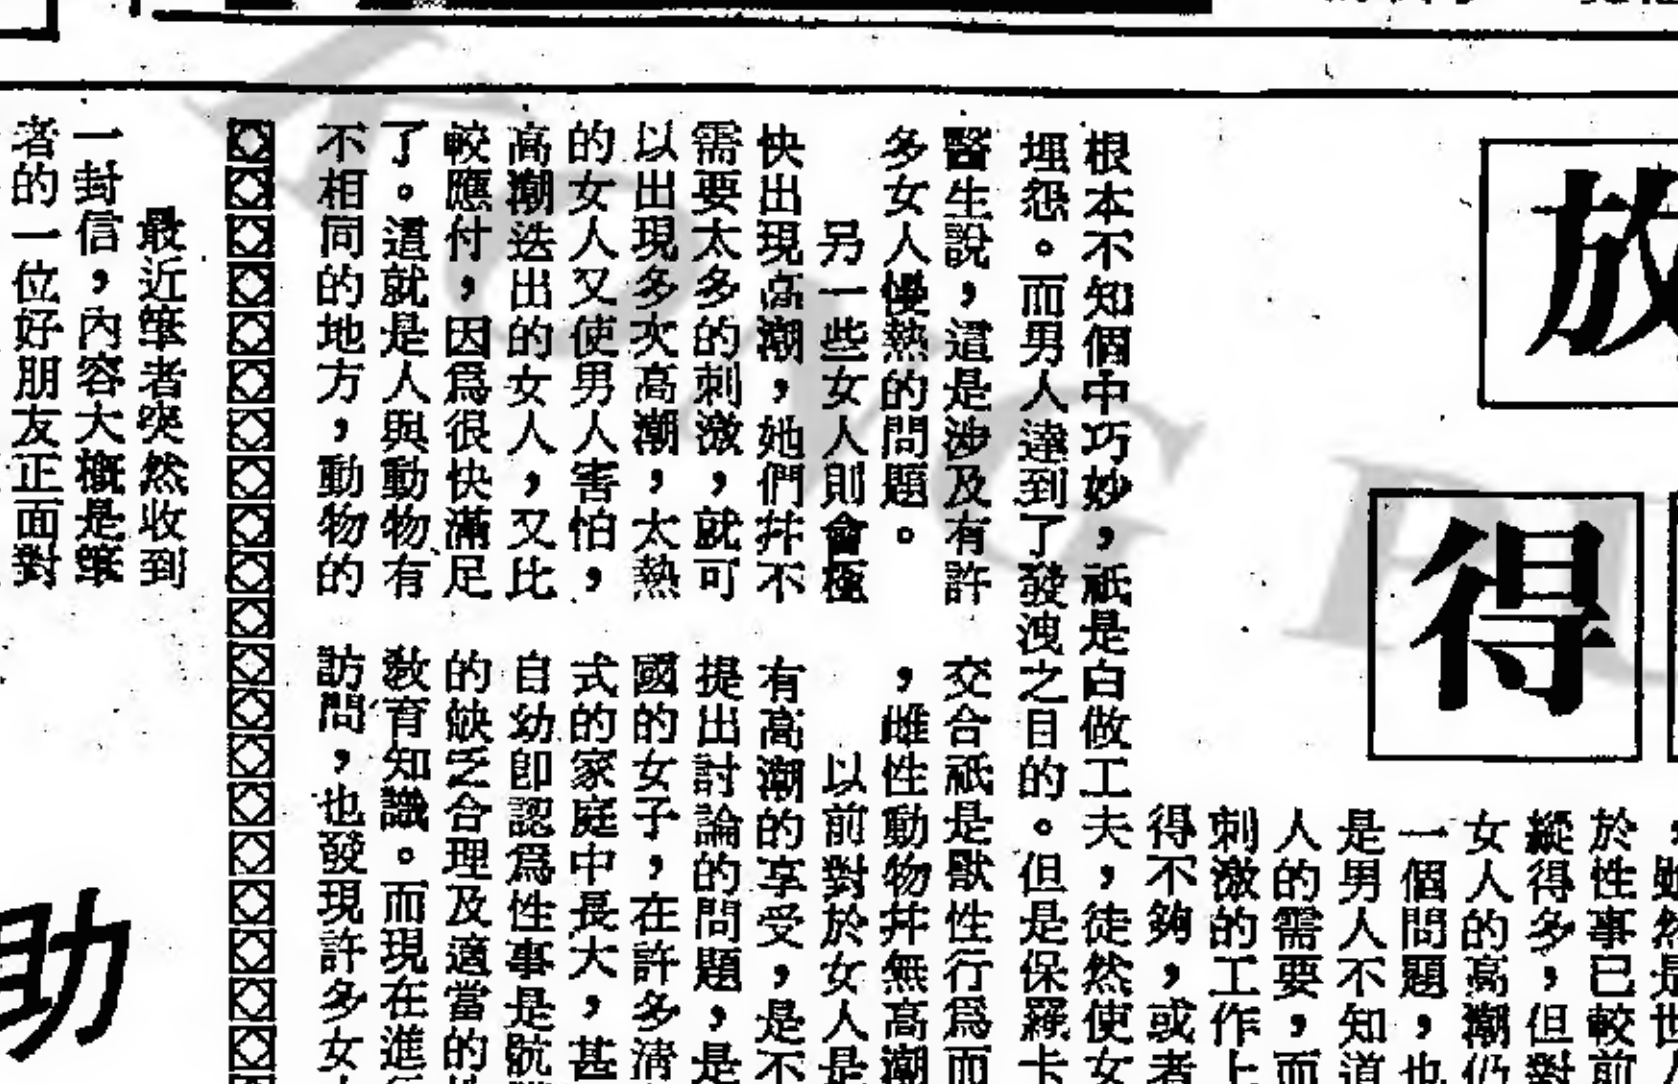 放
得
雖然是世
於性事已較前
縱得多，但對
女人的高潮仍
一個問題，也
是男人不知道
人的需要，而
刺激的工作上
得不夠，或者
根本不知個中巧妙，祇是白做工夫，徒然使女
埋怨。而男人達到了發洩之目的。但是保羅卡
醫生說，這是涉及有許
多女人慢熱的問題。
另一些女人則會極
快出現高潮，她們幷不
需要太多的刺激，就可
以出現多次高潮，太熱
的女人又使男人害怕，
高潮迭出的女人，又比
較應付，因爲很快滿足
了。這就是人與動物有
不相同的地方，動物的
交合祇是獸性行爲而
，雌性動物幷無高潮
以前對於女人是
有高潮的享受，是不
提出討論的問題，是
國的女子，在許多淸
式的家庭中長大，甚
自幼卽認爲性事是骯
的缺乏合理及適當的
敎育知識。而現在進
訪問，也發現許多女
最近筆者突然收到
一封信，內容大槪是筆
者的一位好朋友正面對
助